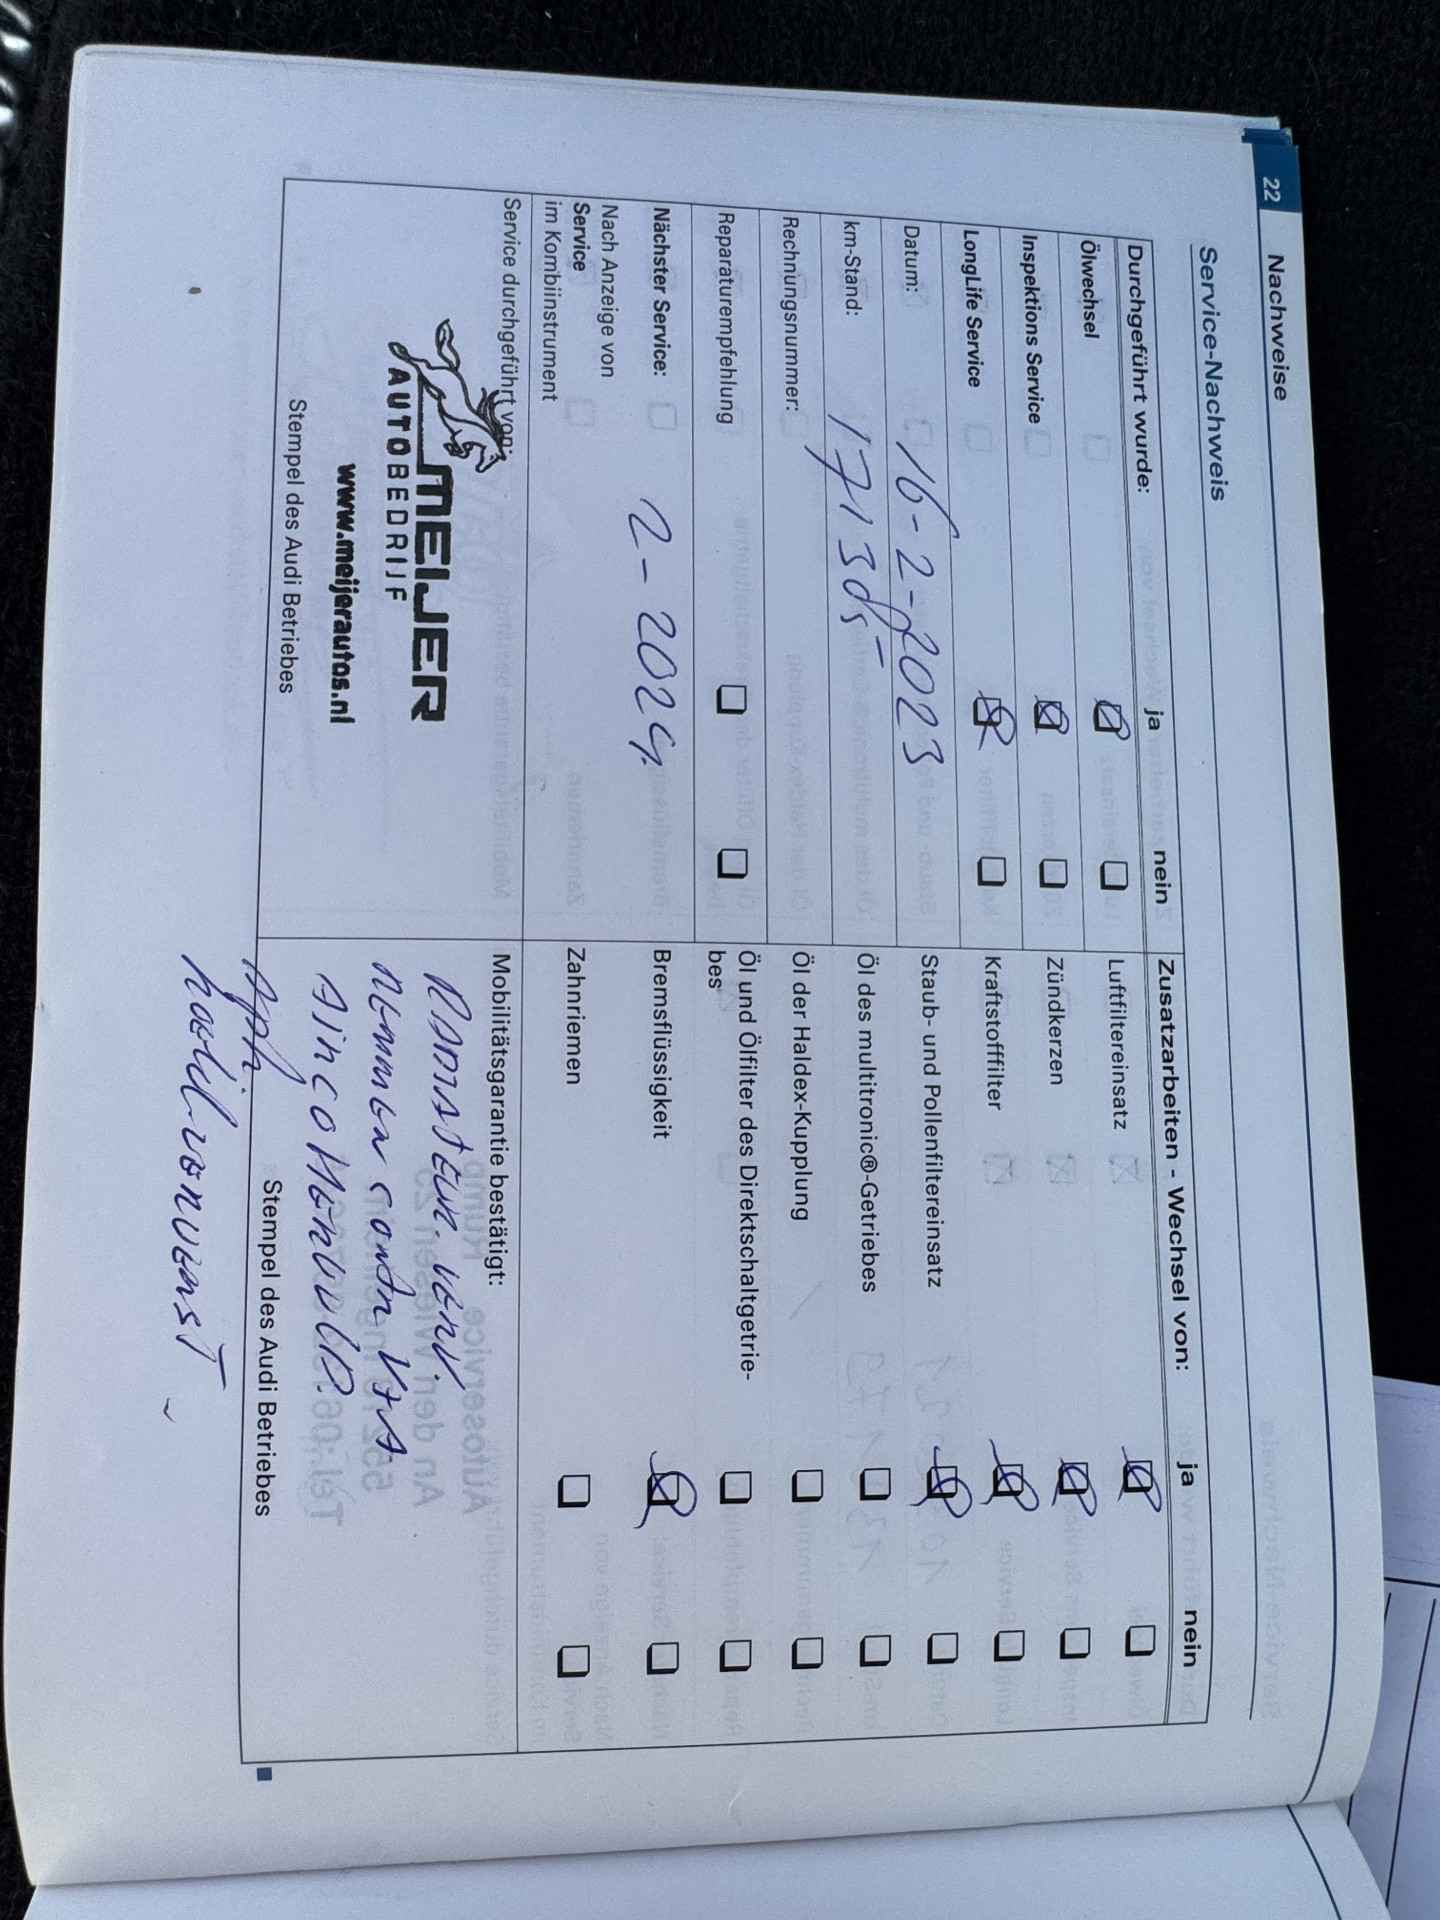 22 Nachweise
Service-Nachweis
Durchgeführt wurde: ja nein
Ölwechsel
Inspektions Service
LongLife Service
Datum: 16-2-2023
km-Stand:
Rechnungsnummer:
Reparaturempfehlung
Nächster Service: 2-2024.
Nach Anzeige von
Service
im Kombiinstrument
Service durchgeführt von:
MEIJER
AUTOBEDRIJF
www.meijerautos.nl
Stempel des Audi Betriebes
Zusatzarbeiten - Wechsel von: ja nein
Luftfiltereinsatz
Zündkerzen
Kraftstofffilter
Staub- und Pollenfiltereinsatz
Öl des multitronic®-Getriebes
Öl der Haldex-Kupplung
Öl und Ölfilter des Direktschaltgetrie-
bes
Bremsflüssigkeit
Zahnriemen
Mobilitätsgarantie bestätigt:
Stempel des Audi Betriebes